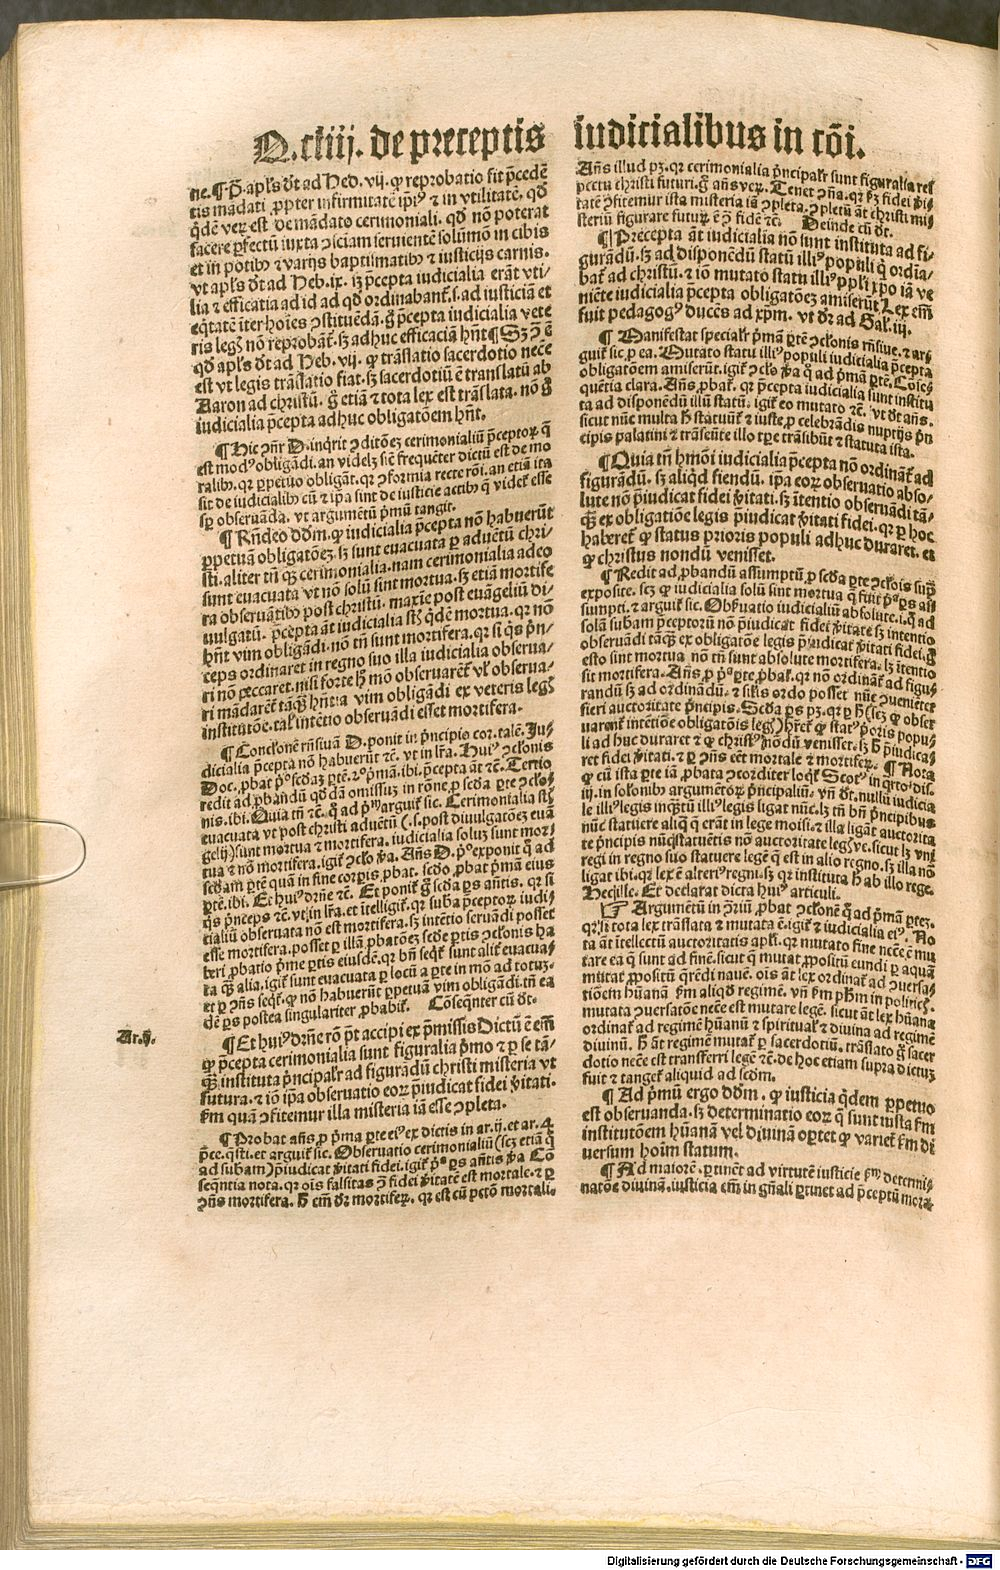 Q.ciiij. de preceptis iudicialibus in cōi.
ne. ¶ P. apl's dt ad Heb. vij. ꝙ reprobatio fit p̄cedē
tis mādati ꝓpter infirmitatē ip̄iꝰ ⁊ in vtilitatē, qd̄
q̄dē veꝝ est de mādato cerimoniali. qd̄ nō poterat
facere ꝑfectū iuxta ꝯsciam seruientē solūmō in cibis
et in potibꝫ ⁊ varijs baptismatibꝫ ⁊ iusticijs carnis.
vt apl's dt ad Heb. ix. iꝫ p̄cepta iudicialia erāt vti/
lia ⁊ efficatia ad id ad qd̄ ordinabant̄. s. ad iusticiā et
eq̄tatē iter hoīes ꝯstituēdā. ḡ p̄cepta iudicialia vete
ris legꝭ nō reprobāt̄. sꝫ adhuc efficaciā hn̄t ¶ Sꝫ ꝯ ē
qd̄ apl's dt ad Heb. vij. ꝙ trāslatio sacerdotio necē
est vt legis trāslatio fiat. sꝫ sacerdotiū ē translatū ab
Aaron ad christū. ḡ etiā ⁊ tota lex est trāslata. nō ḡ
iudicialia p̄cepta adhuc obligatōem hn̄t.
¶ Hic ꝯn̄r D. inqrit ꝯditōeꝫ cerimonialiū p̄ceptoꝝ q̄
est modꝰ obligādi. an videlꝫ sic̄ frequēter dictū est de mo
ralibꝫ. qꝛ ꝑpetuo obligāt. qꝛ ꝯformia recte rōi. an etiā ita
sit de iudicialibꝫ cū ⁊ ip̄a sint de iusticie actibꝫ q̄ videt̄ esse
sp̄ obseruāda. vt argumētū p̄mū tangit.
¶ Rn̄deo dd̄m. ꝙ iudicialia p̄cepta nō habuerūt
ꝑpetuā obligatōeꝫ. sꝫ sunt euacuata ꝑ aduētū chri/
sti. aliter tn̄ qꝫ cerimonialia. nam cerimonialia adeo
sunt euacuata vt nō solū sint mortua. sꝫ etiā mortife
ra obseruātibꝫ post christū. maxie post euāgeliū di/
uulgatū. p̄cepta āt iudicialia st̄ q̄dē mortua. qꝛ nō
hn̄t vim obligādi. nō tn̄ sunt mortifera. qꝛ si qs p̄n/
ceps ordinaret in regno suo illa iudicialia obserua/
ri nō peccaret. nisi forte h̄ mō obseruarēt̄ vl' obserua/
ri mādarēt̄ tāqꝫ hn̄tia vim obligādi ex veteris legꝭ
institutōe. tal' intētio obseruādi esset mortifera.
¶ Conclōnē rn̄siuā D. ponit in p̄ncipio cor. talē. Ju/
dicialia p̄cepta nō habuerūt ⁊c. vt in lr̄a. Huiꝰ ꝯclonis
Doc. ꝓbat pͦ scd̄aꝫ ꝑtē. ⁊ ͦ p̄mā. ibi. p̄cepta āt ⁊c. Tertio
redit ad ꝓbandū qd̄ dā omissuꝫ in rōne ꝓ scd̄a ꝑte ꝯclo/
nis. ibi. Quia tn̄ ⁊c. q̄ ad pͫ arguit̄ sic. Cerimonialia st̄
euacuata vt post christi aduētū (. s. post diuulgatōeꝫ euā
gelij) sunt mortua ⁊ mortifera. iudicialia soluꝫ sunt mor/
tua ⁊ nō mortifera. igit̄ ꝯclo ṽa. An̄s D. pͦ exponit q̄ ad
scd̄am ꝑtē quā in fine corꝑis ꝓbat. scd̄o ꝓbat p̄mā eius
ꝑtē. ibi. Et huiꝰ drn̄e ⁊c. Et ponit̄ ḡ scd̄a ꝑs an̄tis. qꝛ si
qs p̄nceps ⁊c. vt in lr̄a. et itelligit̄. qꝛ suba p̄ceptoꝝ iudi/
cialiū obseruata nō est mortifera. sꝫ intētio seruādi posset
esse mortifera. posset ꝑ illā ꝓbatōeꝫ scd̄e ꝑtis ꝯclonis ha
beri ꝓbatio p̄me ꝑtis eiusdē. qꝛ bn̄ seqt̄ sunt alit̄ euacua/
ta qꝫ alia. igit̄ sunt euacuata ꝑ locū a ꝑte in mō ad totuꝫ.
et ꝑ ꝯn̄s seqt̄. ꝙ nō habuerūt ꝑpetuā vim obligādi. tn̄ ea
dē ꝑs postea singulariter ꝓbabit̄. Cōseqn̄ter cū dt.
Ar.ij.
¶ Et huiꝰ drn̄e rō p̄t accipi ex p̄missis Dictū ē em̄
ꝙ p̄cepta cerimonialia sunt figuralia p̄mo ⁊ ꝑ se tā/
qꝫ instituta p̄ncipal'r ad figurādū christi misteria vt
futura. ⁊ iō ip̄a obseruatio eoꝝ p̄iudicat fidei ṽitati.
fm̄ quā ꝯfitemur illa misteria iā esse ꝯpleta.
¶ Probat an̄s ꝓ p̄ma ꝑte eiꝰ ex dictis in ar. ij. et ar. 4.
p̄ce. q̄sti. et arguit̄ sic. Obseruatio cerimonialiū (scꝫ etiā q̄
ad subam) p̄iudicat ṽitati fidei. igit̄ pͣ ꝑs an̄tis ṽa Cō
seqn̄tia nota. qꝛ oīs falsitas ꝯ fidei ṽitatē est mortale. ⁊ ꝑ
ꝯn̄s mortifera. H̄ em̄ dr̄ mortifeꝝ. qꝛ est cū pctō mortali.
An̄s illud pꝫ. qꝛ cerimonialia p̄ncipal'r sunt figuralia res
pectu christi futuri. ḡ an̄s veꝝ. Tenet ꝯn̄a. qꝛ fꝫ fidei ṽi
tatē ꝯfitemur ista misteria iā ꝯpleta. ꝯpletū āt christi mi/
steriū figurare futuꝝ ē ꝯ fidē ⁊c. Deinde cū dt.
¶ Precepta āt iudicialia nō sunt instituta ad fi/
gurādū. sꝫ ad disponēdū statū illiꝰ populi q̄ ordia/
bat̄ ad christū. ⁊ iō mutato statu illiꝰ ppl'i xp̄o iā ve
niēte iudicialia p̄cepta obligatōeꝫ amiserūt. Lex em̄
fuit pedagogꝰ ducēs ad xp̄m. vt dr̄ ad Gal. iij.
¶ Manifestat special'r p̄mā ꝑtē ꝯclonis rn̄siue. ⁊ ar/
guit̄ sic. ꝓ ea. Mutato statu illiꝰ populi iudicialia p̄cepta
obligatōem amiserūt. igit̄ ꝯclo ṽa q̄ ad p̄mā ꝑtē. Cōse/
quētia clara. An̄s ꝓbat̄. qꝛ p̄cepta iudicialia sunt institu
ta ad disponēdū illū statū. igit̄ eo mutato ⁊c. vt dt an̄s.
sicut nūc multa h̄ statuūt̄ ⁊ iuste. ꝓ celebrādis nuptijs p̄n
cipis palatini ⁊ trāseūte illo tꝑe trāsibūt ⁊ statuta ista.
¶ Quia tn̄ hm̄oi iudicialia p̄cepta nō ordināt̄ ad
figurādū. sꝫ aliqd̄ fiendū. ip̄a eoꝝ obseruatio abso/
lute nō p̄iudicat fidei ṽitati. sꝫ itentio obseruādi tā/
qꝫ ex obligatiōe legis p̄iudicat ṽitati fidei. qꝛ ꝑ hoc
haberet̄ ꝙ status prioris populi adhuc duraret. et
ꝙ christus nondū venisset.
¶ Redit ad ꝓbandū assumptū. ꝓ scd̄a ꝑte ꝯclois supͣ
exposite. scꝫ ꝙ iudicialia solū sint mortua q̄ fuit pͣ ꝑs as/
sumpti. ⁊ arguit̄ sic. Obẜuatio iudicialiū absolute. i. q̄ ad
solā subam p̄ceptorū nō p̄iudicat fidei ṽitati sꝫ intentio
obseruādi tāqꝫ ex obligatōe legis p̄iudicat ṽitati fidei. ḡ
esto sint mortua nō tn̄ sunt absolute mortifera. lꝫ itentio
sit mortifera. An̄s ꝓ pͣ ꝑte ꝓbat̄. qꝛ nō ordināt̄ ad figu/
randū sꝫ ad ordinādū. ⁊ sil'is ordo posset nūc ꝯueniēter
fieri auctoritate p̄ncipis. Scd̄a ꝑs pꝫ. qꝛ ꝑ h̄ (scꝫ ꝙ obser
uarent̄ intētiōe obligatōis legꝭ) hr̄et̄ ꝙ statꝰ p̄oris popu/
li ad huc duraret ⁊ ꝙ christꝰ nōdū venisset. sꝫ h̄ p̄iudica/
ret fidei ṽitati. ⁊ ꝑ ꝯn̄s eēt mortale ⁊ mortifeꝝ. ¶ Nota
ꝙ cū ista ꝑte iā ꝓbata ꝯcorditer loqt̄ Scotꝰ in qͬto dis.
iij. in solonibꝫ argumētoꝝ p̄ncipaliū. vn̄ dt. nullū iudicia
le illiꝰ legis inqꝫtū illiꝰ legis ligat nūc. lꝫ tn̄ bn̄ p̄ncipibus
nūc statuere aliq̄ q̄ erāt in lege moisi. ⁊ illa ligāt auctorita
te p̄ncipis nūc statuētis nō auctoritate legꝭ ve. sicut lꝫ vni
regi in regno suo statuere legē q̄ est in alio regno. sꝫ illa nō
ligat ibi. qꝛ lex ē alteriꝰ regni. sꝫ qꝛ instituta h̄ ab illo rege.
Hec ille. Et declarat dicta huiꝰ articuli.
☞ Argumētū in ꝯriū ꝓbat ꝯclonē q̄ ad p̄mā ꝑteꝫ.
qꝛ si tota lex trāslata ⁊ mutata ē. igit̄ ⁊ iudicialia eiꝰ. No
ta āt itellectū auctoritatis apl'i. qꝛ mutato fine necē ē mu
tare ea q̄ sunt ad finē. sicut q̄ mutat ꝓpositū eundi ꝑ aquā
mutat ꝓpositū q̄rēdi nauē. oīs āt lex ordinat̄ ad ꝯuersa/
tiōem hūanā fm̄ aliqd̄ regimē. vn̄ fm̄ ph̄m in politicꝭ.
mutata ꝯuersatōe necē est mutare legē. sicut āt lex hūana
ordinat̄ ad regimē hūanū ⁊ spiritual' ⁊ diuina ad regimē
diuinū. H̄ āt regimē mutat̄ ꝑ sacerdotiū. trāslato ḡ sacer
dotio necē est transferri legē ⁊c. de hoc etiam supra dictuꝫ
fuit ⁊ tanget̄ aliquid ad scd̄m.
¶ Ad p̄mū ergo dd̄m. ꝙ iusticia q̄dem ꝑpetuo
est obseruanda. sꝫ determinatio eoꝝ q̄ sunt iusta fm̄
institutōem hūanā vel diuinā oꝑtet ꝙ variet̄ fm̄ di
uersum hoim statum.
¶ Ad maiorē. ꝑtinēt ad virtutē iusticie fm̄ determi/
natōeꝫ diuinā. iusticia em̄ in gn̄ali ꝑtinet ad p̄ceptū mora/
Digitalisierung gefördert durch die Deutsche Forschungsgemeinschaft - DFG